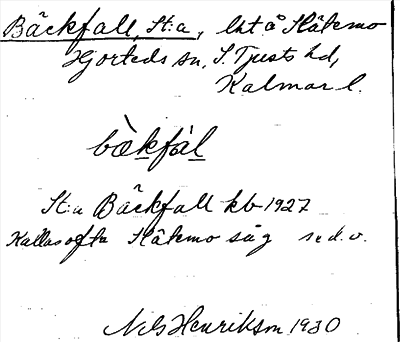 Bäckfall, St:a, lht å Slätmo
Hjorteds sn, S. Tjusts hd,
Kalmar l.
bæ̀kfàl
St:a Bäckfall kb 1927
Kallas ofta Slätmo såg se d. o.
Nils Henriksm 1930